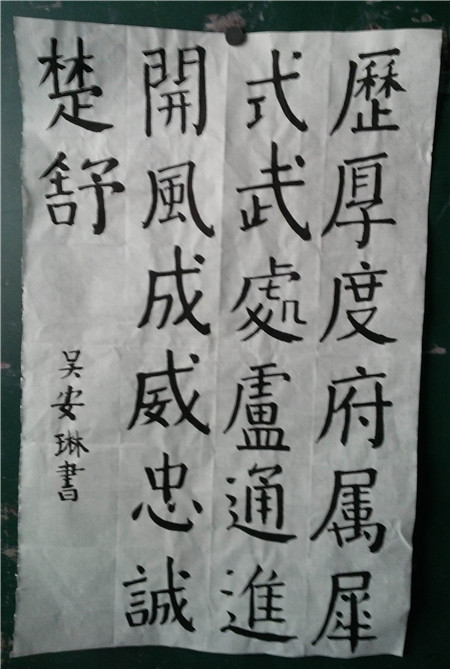 歷厚度府属犀
式武處盧通進
開風成威忠誠
楚舒
吴安琳書